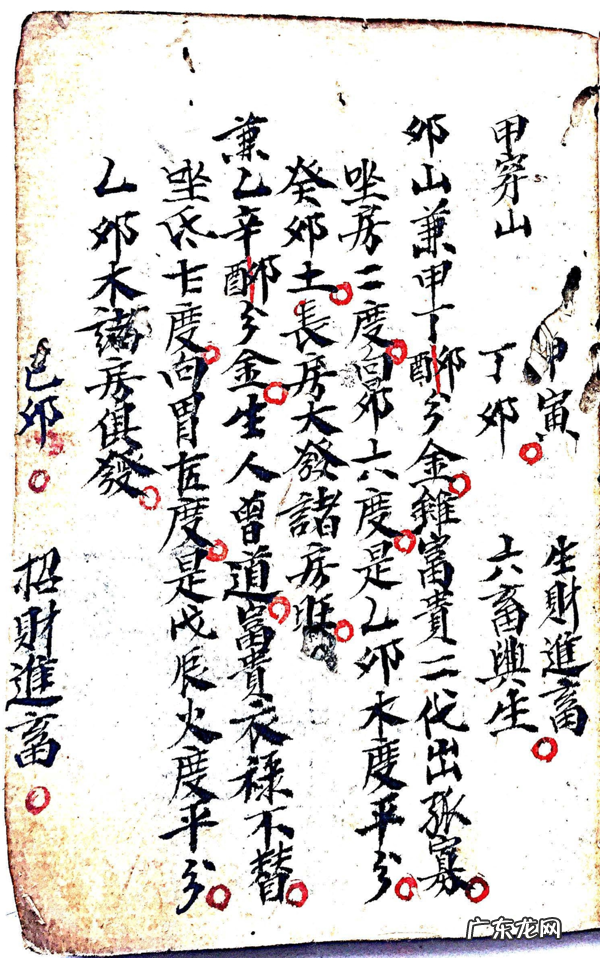 甲寅 生財進畜
甲穿山 丁卯 六畜興生
卯山兼甲丁卯丁酉分金雖富貴二代出孤寡
坐房二度向昴六度是乙卯木度平分
癸卯土長房大發諸房旺
兼乙辛卯辛酉分金生人曾道富貴衣祿不替
坐氐十度向胃度是戊辰火度平分
乙卯木諸房俱發
己卯 招財進畜
广东龙网